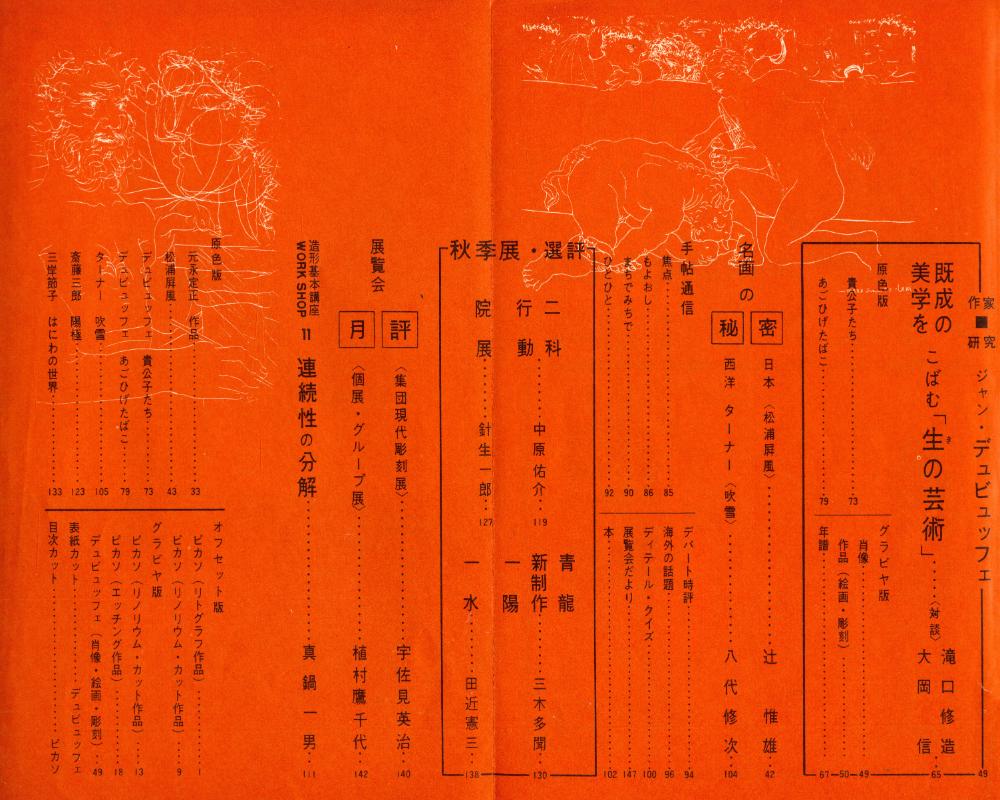 作家■研究 ジャン・デュビュッフェ 49
既成の美学を
こばむ「生の芸術」……〈対談〉 滝口修造 大岡信 65
き
原色版
貴公子たち 73
あごひげたばこ 79
グラビヤ版
肖像 49
作品(絵画・彫刻) 50
年譜 67
名画の秘密
日本〈松浦屏風〉 辻惟雄 42
西洋 ターナー〈吹雪〉 八代修次 104
手帖通信
焦点 85
もよおし 86
まちでみちで 90
ひとひと 92
デパート時評 94
海外の話題 96
ディテール・クイズ 100
展覧会だより 147
本 102
秋季展・選評
二科
行動 中原佑介 119
院展 針生一郎 127
青龍
新制作 三木多聞 130
一陽
一水 田近憲三 138
展覧会
月評
〈集団現代彫刻展〉 宇佐見英治 140
〈個展・グループ展〉 植村鷹千代 142
造形基本講座
WORK SHOP 11 連続性の分解 真鍋一男 111
原色版
元永定正 作品 33
松浦屏風 43
デュビュッフェ 貴公子たち 73
デュビュッフェ あごひげたばこ 79
ターナー 吹雪 105
斎藤三郎 陽極 123
三岸節子 はにわの世界 133
オフセット版
ピカソ(リトグラフ作品) 1
ピカソ(リノリウム・カット作品) 9
グラビヤ版
ピカソ(リノリウム・カット作品) 13
ピカソ(エッチング作品) 18
デュビュッフェ(肖像・絵画・彫刻) 49
表紙カット デュビュッフェ
目次カット ピカソ